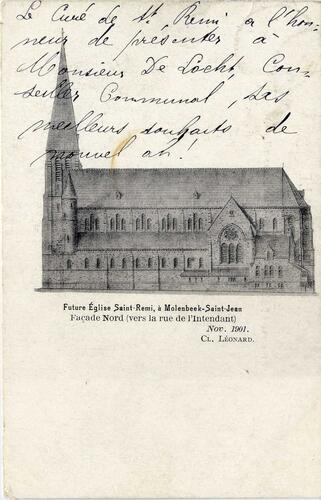 Le Curé de St Remi a l'hon-
neur de présenter à
Monsieur De Locht, Con-
seiller Communal, ses
meilleurs souhaits de
nouvel an!
Future Église Saint-Remi, à Molenbeek-Saint-Jean
Façade Nord (vers la rue de l'Intendant)
Nov. 1901.
Cl. Léonard.